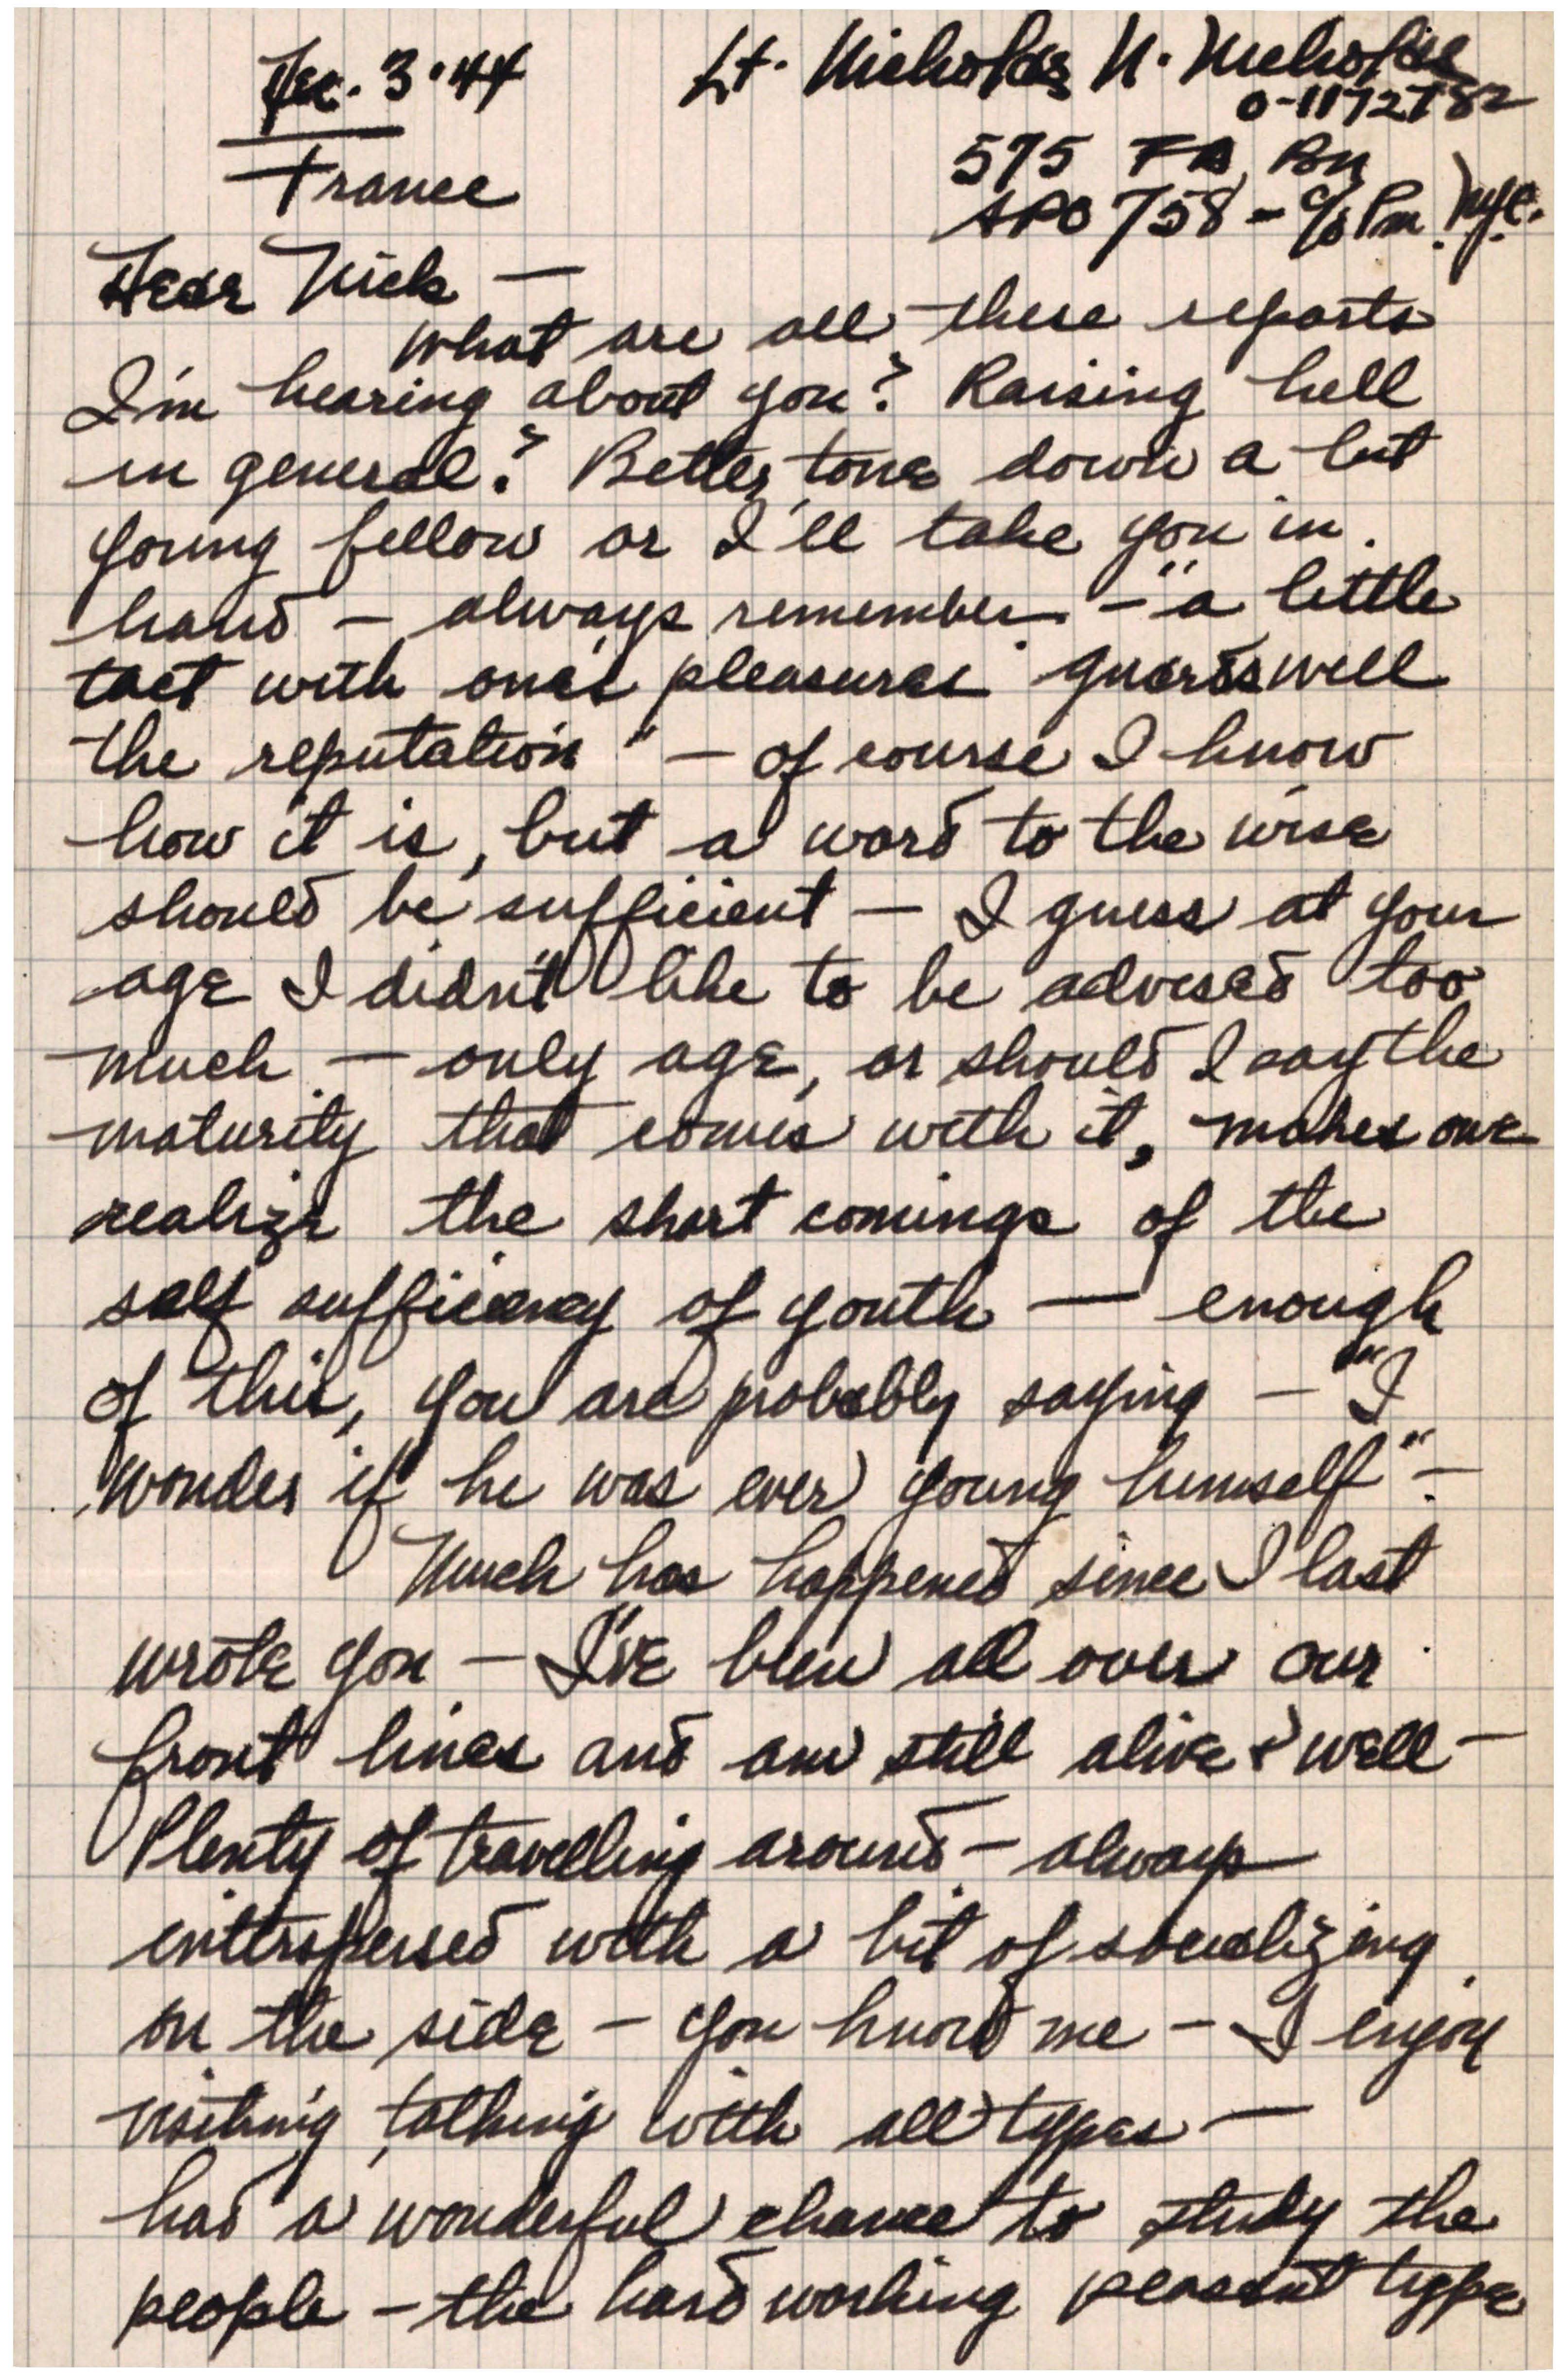 Dec. 3 · 44
Lt. Nicholas N. Nicholas
0-1172782
France
575 FA Bn
APO 758 - c/o Pm. Nyc.
Dear Nick —
What are all these reports
I'm hearing about you? Raising hell
in general? Better tone down a bit
young fellow or I'll take you in
hand - always remember - "a little
tact with one's pleasures guards well
the reputation" - of course I know
how it is, but a word to the wise
should be sufficient - I guess at your
age I didn't like to be advised too
much - only age, or should I say the
maturity that comes with it, makes one
realize the short comings of the
self sufficiency of youth — enough
of this, you are probably saying - "I
wonder if he was ever young himself" -
Much has happened since I last
wrote you - I've been all over our
front lines and am still alive & well -
Plenty of travelling around - always
interspersed with a bit of socializing
on the side - you know me - I enjoy
visiting, talking with all types -
had a wonderful chance to study the
people - the hard working peasant type